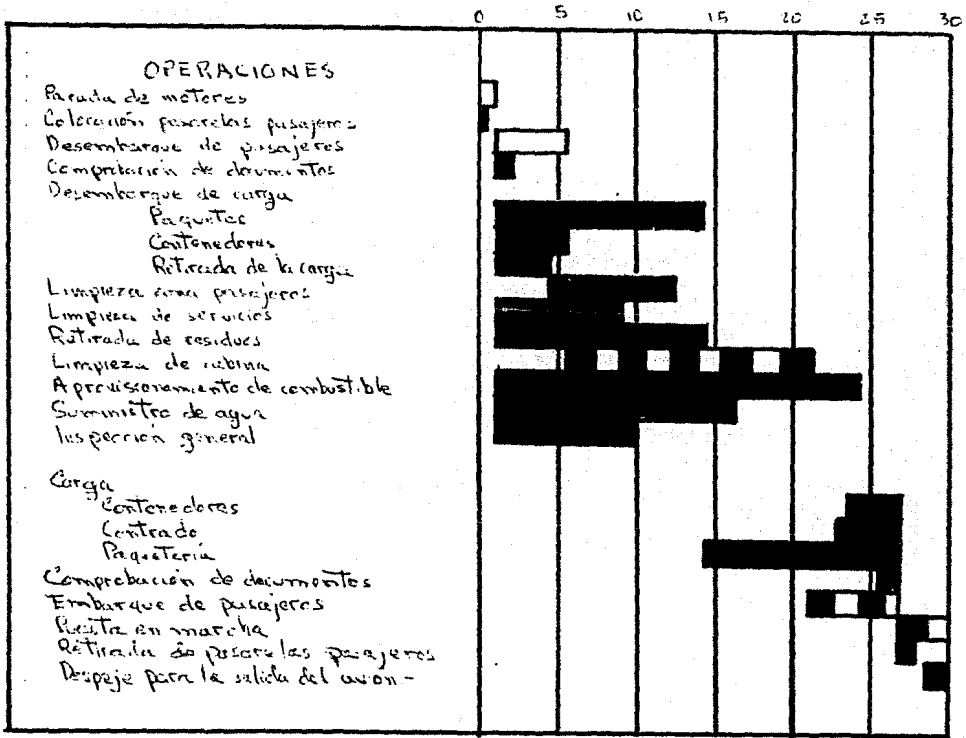 0 5 10 15 20 25 30
OPERACIONES
Parada de motores
Colocación pasarelas pasajeros
Desembarque de pasajeros
Comprobación de documentos
Desembarque de carga
Paquetes
Contenedores
Retirada de la carga
Limpieza zona pasajeros
Limpieza de servicios
Retirada de residuos
Limpieza de cabina
Aprovisionamiento de combustible
Suministro de agua
Inspección general
Carga
Contenedores
Centrado
Paquetería
Comprobación de documentos
Embarque de pasajeros
Puesta en marcha
Retirada de pasarelas pasajeros
Despeje para la salida del avion-